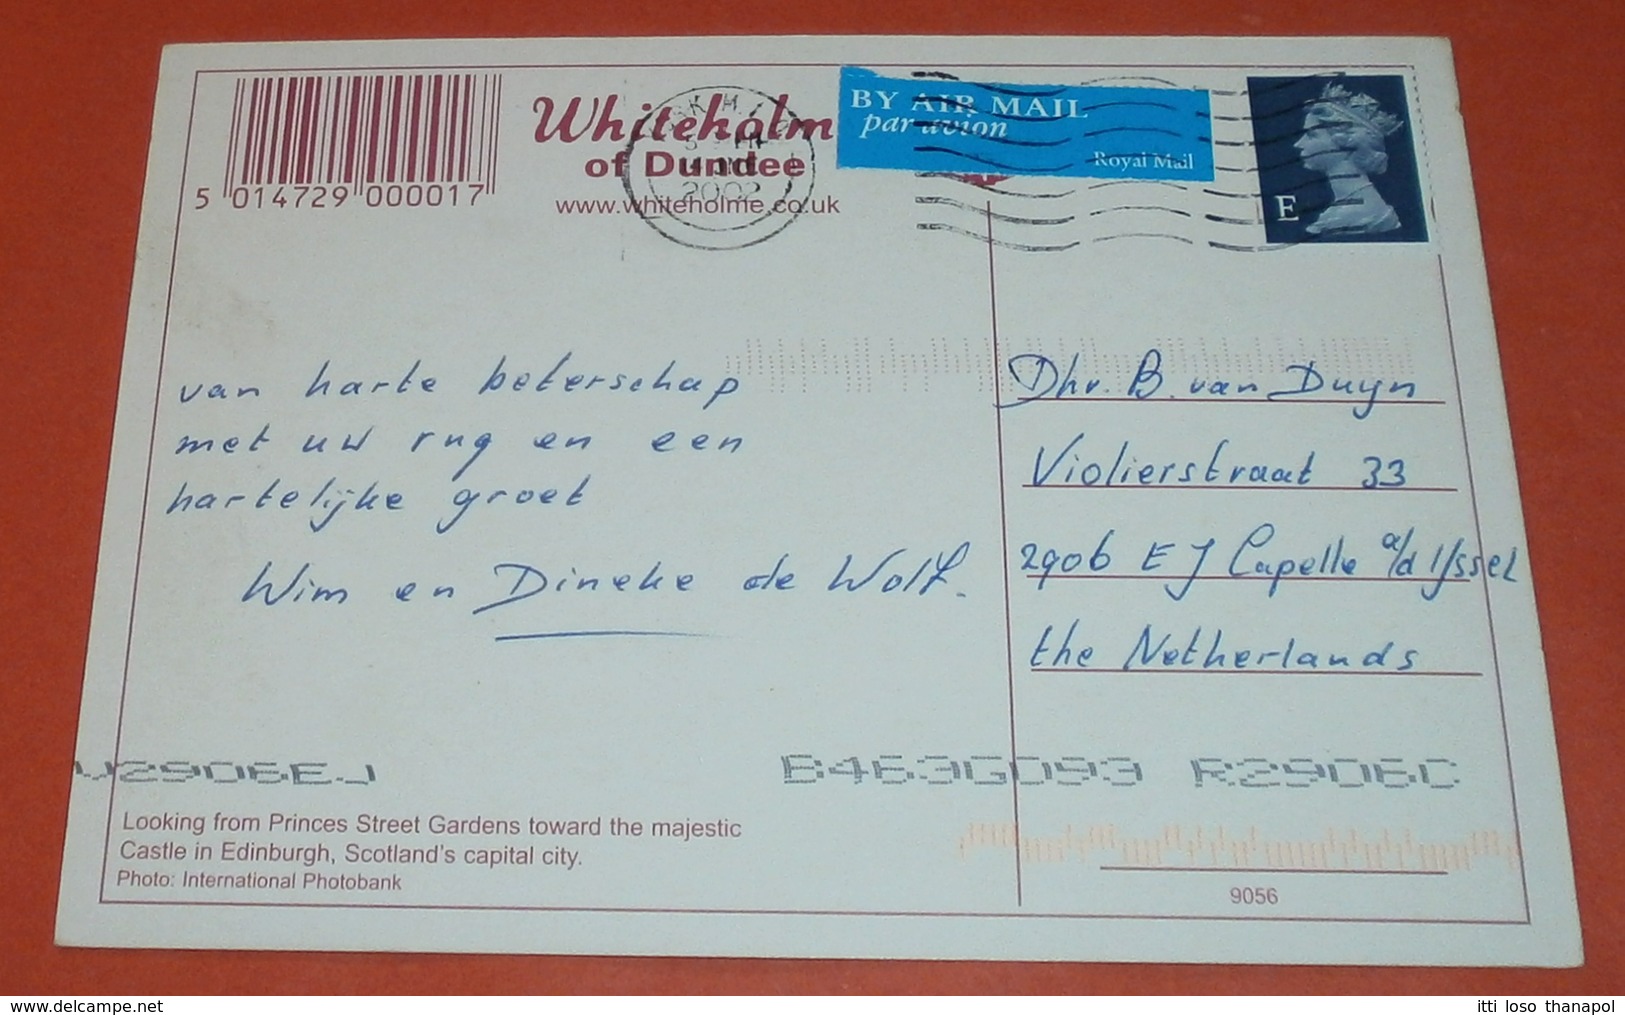 Whiteholm
of Dundee
www.whiteholme.co.uk
5 014729 000017
2002
BY AIR MAIL
par avion
Royal Mail
E
van harte beterschap
met uw rug en een
hartelijke groet
Wim en Dineke de Wolf.
Dhr. B. van Duyn
Violierstraat 33
2906 EJ Capelle a/d IJssel
the Netherlands
V2906EJ
B463G093 R2906C
Looking from Princes Street Gardens toward the majestic
Castle in Edinburgh, Scotland's capital city.
Photo: International Photobank
9056
www.delcampe.net
itti loso thanapol